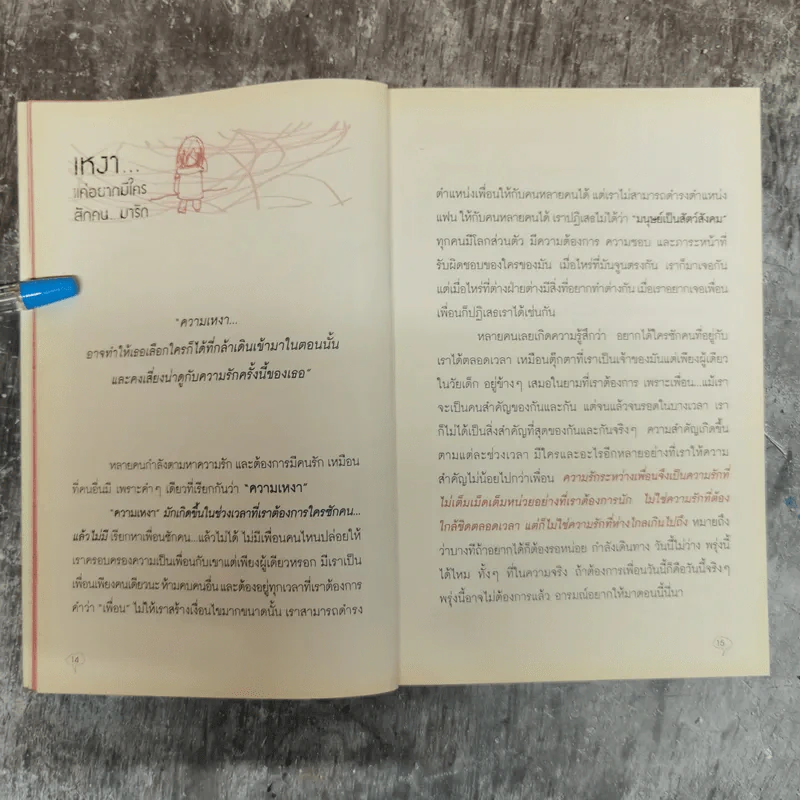 เหงา...
แค่อยากมีใคร
สักคน...มารัก
"ความเหงา...
อาจทำให้เธอเลือกใครก็ได้ที่กล้าเดินเข้ามาในตอนนั้น
และคงเสี่ยงน่าดูกับความรักครั้งนี้ของเธอ"
หลายคนกำลังตามหาความรัก และต้องการมีคนรัก เหมือน
ที่คนอื่นมี เพราะคำๆ เดียวที่เรียกกันว่า "ความเหงา"
"ความเหงา" มักเกิดขึ้นในช่วงเวลาที่เราต้องการใครซักคน...
แล้วไม่มี เรียกหาเพื่อนซักคน...แล้วไม่ได้ ไม่มีเพื่อนคนไหนปล่อยให้
เราครอบครองความเป็นเพื่อนกับเขาแต่เพียงผู้เดียวหรอก มีเราเป็น
เพื่อนเพียงคนเดียวนะ ห้ามคบคนอื่น และต้องอยู่ทุกเวลาที่เราต้องการ
คำว่า "เพื่อน" ไม่ให้เราสร้างเงื่อนไขมากขนาดนั้น เราสามารถดำรง
14
ตำแหน่งเพื่อนให้กับคนหลายคนได้ แต่เราไม่สามารถดำรงตำแหน่ง
แฟน ให้กับคนหลายคนได้ เราปฏิเสธไม่ได้ว่า "มนุษย์เป็นสัตว์สังคม"
ทุกคนมีโลกส่วนตัว มีความต้องการ ความชอบ และภาระหน้าที่
รับผิดชอบของใครของมัน เมื่อไหร่ที่มันจูนตรงกัน เราก็มาเจอกัน
แต่เมื่อไหร่ที่ต่างฝ่ายต่างมีสิ่งที่อยากทำต่างกัน เมื่อเราอยากเจอเพื่อน
เพื่อนก็ปฏิเสธเราได้เช่นกัน
หลายคนเลยเกิดความรู้สึกว่า อยากได้ใครซักคนที่อยู่กับ
เราได้ตลอดเวลา เหมือนตุ๊กตาที่เราเป็นเจ้าของมันแต่เพียงผู้เดียว
ในวัยเด็ก อยู่ข้างๆ เสมอในยามที่เราต้องการ เพราะเพื่อน...แม้เรา
จะเป็นคนสำคัญของกันและกัน แต่จนแล้วจนรอดในบางเวลา เรา
ก็ไม่ได้เป็นสิ่งสำคัญที่สุดของกันและกันจริงๆ ความสำคัญเกิดขึ้น
ตามแต่ละช่วงเวลา มีใครและอะไรอีกหลายอย่างที่เราให้ความ
สำคัญไม่น้อยไปกว่าเพื่อน ความรักระหว่างเพื่อนจึงเป็นความรักที่
ไม่เต็มเม็ดเต็มหน่วยอย่างที่เราต้องการนัก ไม่ใช่ความรักที่ต้อง
ใกล้ชิดตลอดเวลา แต่ก็ไม่ใช่ความรักที่ห่างไกลเกินไปถึง หมายถึง
ว่าบางทีถ้าอยากได้ก็ต้องรอหน่อย กำลังเดินทาง วันนี้ไม่ว่าง พรุ่งนี้
ได้ไหม ทั้งๆ ที่ในความจริง ถ้าต้องการเพื่อนวันนี้ก็คือวันนี้จริงๆ
พรุ่งนี้อาจไม่ต้องการแล้ว อารมณ์อยากให้มาตอนนี้นี่นา
15